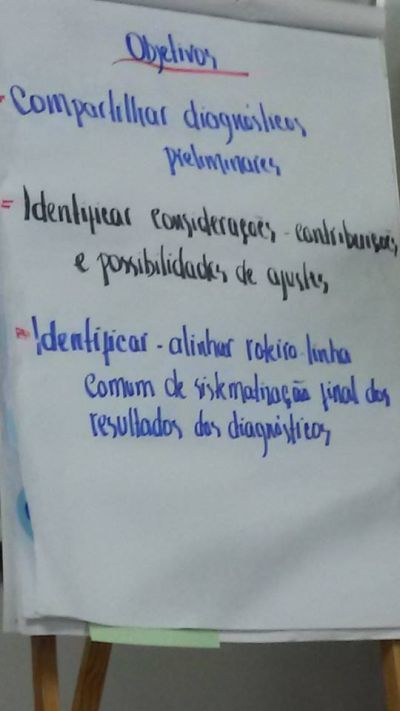 Objetivos
- Compartilhar diagnósticos
preliminares
= Identificar considerações - contribuições
e possibilidades de ajustes
- Identificar - alinhar roteiro linha
comum de sistematização final dos
resultados dos diagnósticos